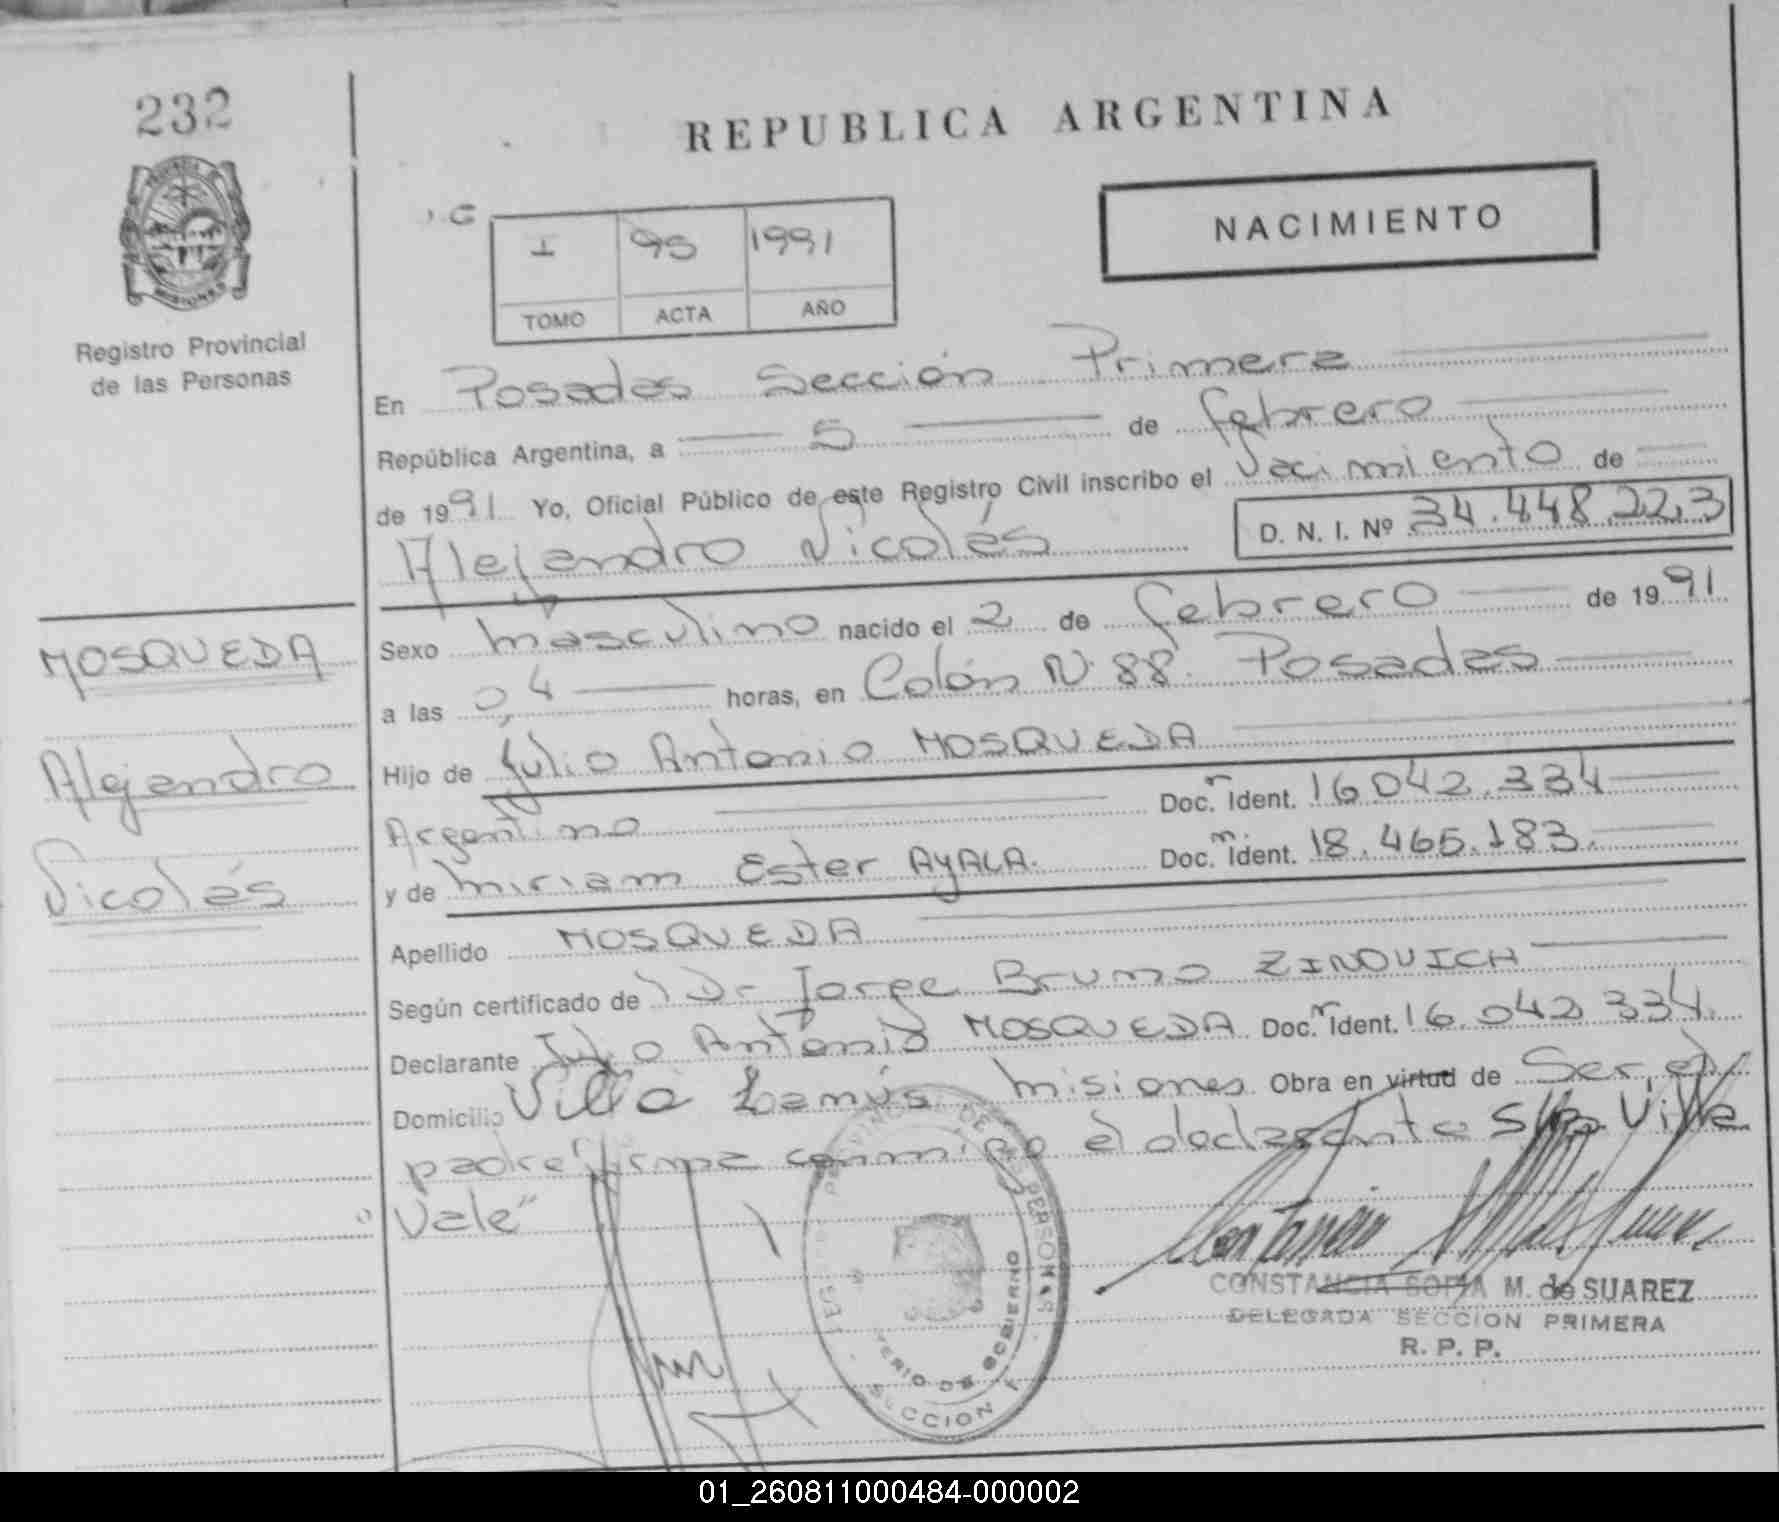 232
REPUBLICA ARGENTINA
PROVINCIA
MISIONES
Registro Provincial
de las Personas
I 95 1991
TOMO ACTA AÑO
NACIMIENTO
En Posadas Sección Primera
República Argentina, a 5 de febrero
de 1991 Yo, Oficial Público de este Registro Civil inscribo el Nacimiento de
Alejandro Nicolás D. N. I. Nº 34.448.223
MOSQUEDA
Alejandro
Nicolás
Sexo masculino nacido el 2 de febrero de 1991
a las 0,4 horas, en Colón Nº 88. Posadas
Hijo de Julio Antonio MOSQUEDA
Argentino Doc. Ident. 16.042.334
y de Miriam Ester AYALA. Doc. Ident. 18.465.183.
Apellido MOSQUEDA
Según certificado de Dr Jorge Bruno ZINOVICH
Declarante Julio Antonio MOSQUEDA Doc. Ident. 16.042.334.
Domicilio Villa Lanús Misiones Obra en virtud de Ser el
padre firma conmigo el declarante S/Rp. Villa
Vale"
CONSTANCIA SOFIA M. de SUAREZ
DELEGADA SECCION PRIMERA
R. P. P.
DE LAS PERSONAS
DE GOBIERNO
SECCION
01_260811000484-000002